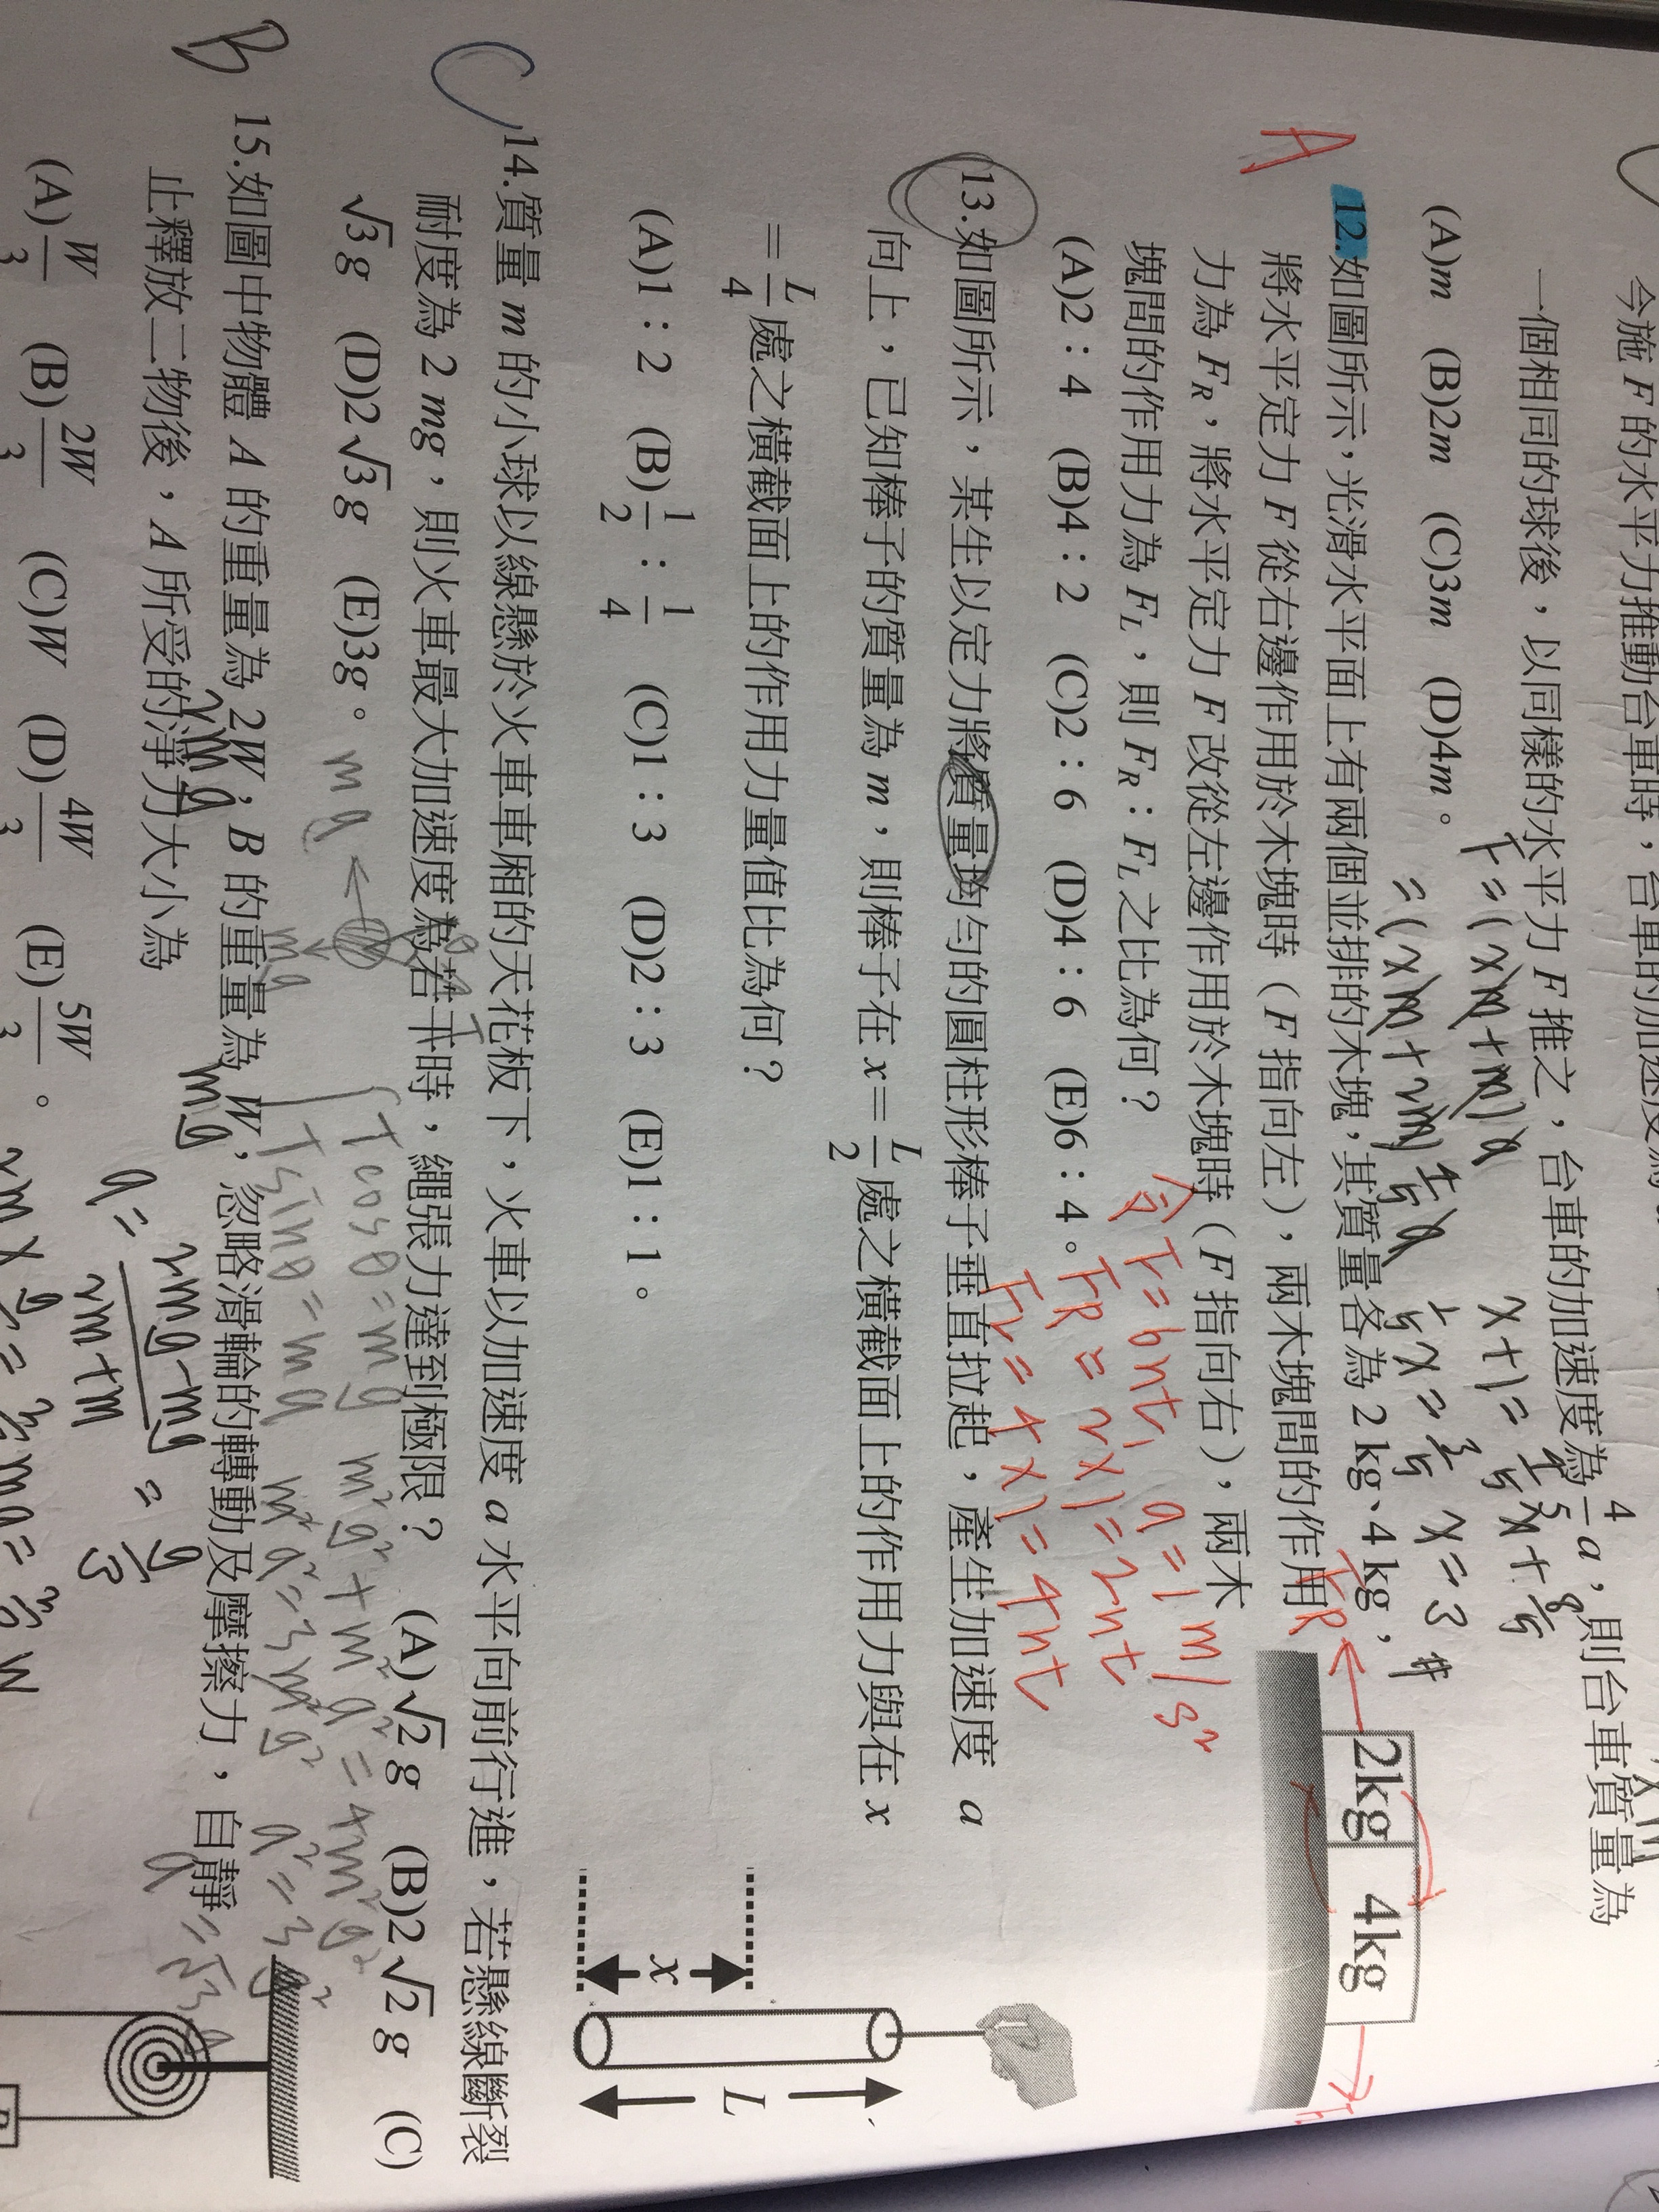 今施 F 的水平力推動台車時，台車的加速度為
一個相同的球後，以同樣的水平力 F 推之，台車的加速度為 4/5 a，則台車質量為
(A)m (B)2m (C)3m (D)4m。
F=(x+m)a
=(xm+2m)4/5a
x+1=4/5x+8/5
1/5x=3/5 x=3#
A
12.如圖所示，光滑水平面上有兩個並排的木塊，其質量各為 2 kg、4 kg，
將水平定力 F 從右邊作用於木塊時（F 指向左），兩木塊間的作用
力為 FR，將水平定力 F 改從左邊作用於木塊時（F 指向右），兩木
塊間的作用力為 FL，則 FR：FL 之比為何？
(A)2：4 (B)4：2 (C)2：6 (D)4：6 (E)6：4。
令F=6nt, a=1m/s²
FR=2×1=2nt
FL=4×1=4nt
FR
2kg 4kg
13.如圖所示，某生以定力將質量均勻的圓柱形棒子垂直拉起，產生加速度 a
向上，已知棒子的質量為 m，則棒子在 x=L/2 處之橫截面上的作用力與在 x
=L/4 處之橫截面上的作用力量值比為何？
(A)1：2 (B)1/2：1/4 (C)1：3 (D)2：3 (E)1：1。
x
L
C
14.質量 m 的小球以線懸於火車車廂的天花板下，火車以加速度 a 水平向前行進，若懸線斷裂
耐度為 2 mg，則火車最大加速度為若干時，繩張力達到極限？ (A)√2 g (B)2√2 g (C)
√3 g (D)2√3 g (E)3g。
ma
mg
T
Tcosθ=mg
Tsinθ=ma
m²g²+m²a²=4m²g²
m²a²=3m²g²
a²=3g²
a=√3g
B
15.如圖中物體 A 的重量為 2W，B 的重量為 W，忽略滑輪的轉動及摩擦力，自靜
止釋放二物後，A 所受的淨力大小為
2mg
mg
(A)W/3 (B)2W/3 (C)W (D)4W/3 (E)5W/3。
a=2mg-mg/2m+m=g/3
2m×g/3=2/3mg=2/3W